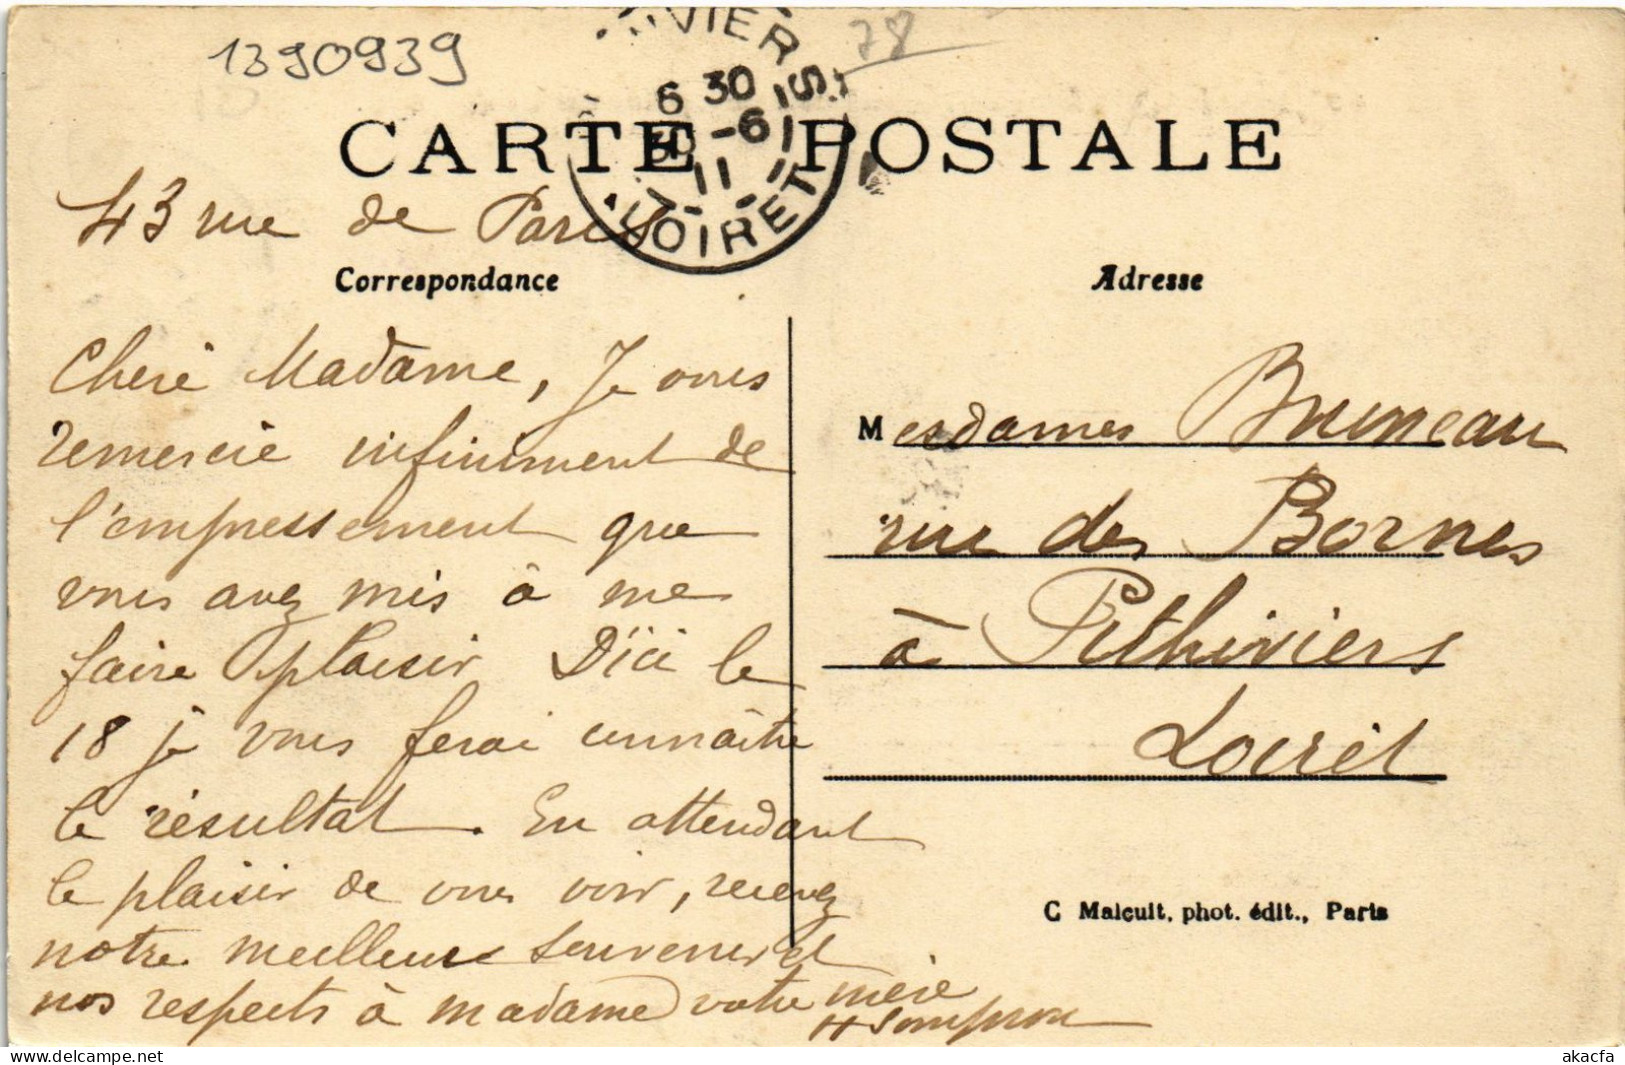 1390939
78
VIERS
6 30
30 -6
11
LOIRET
CARTE POSTALE
43 rue de Paris
Correspondance
Adresse
Chère Madame, Je vous
remercie infiniment de
l'empressement que
vous avez mis à me
faire plaisir D'ici le
18 je vous ferai connaître
le résultat. En attendant
le plaisir de vous voir, recevez
notre meilleur souvenir et
nos respects à madame votre mère
H
Mesdames Bruneau
rue des Bornes
à Pithiviers
Loiret
C Malcuit, phot. édit., Paris
akacfa
www.delcampe.net